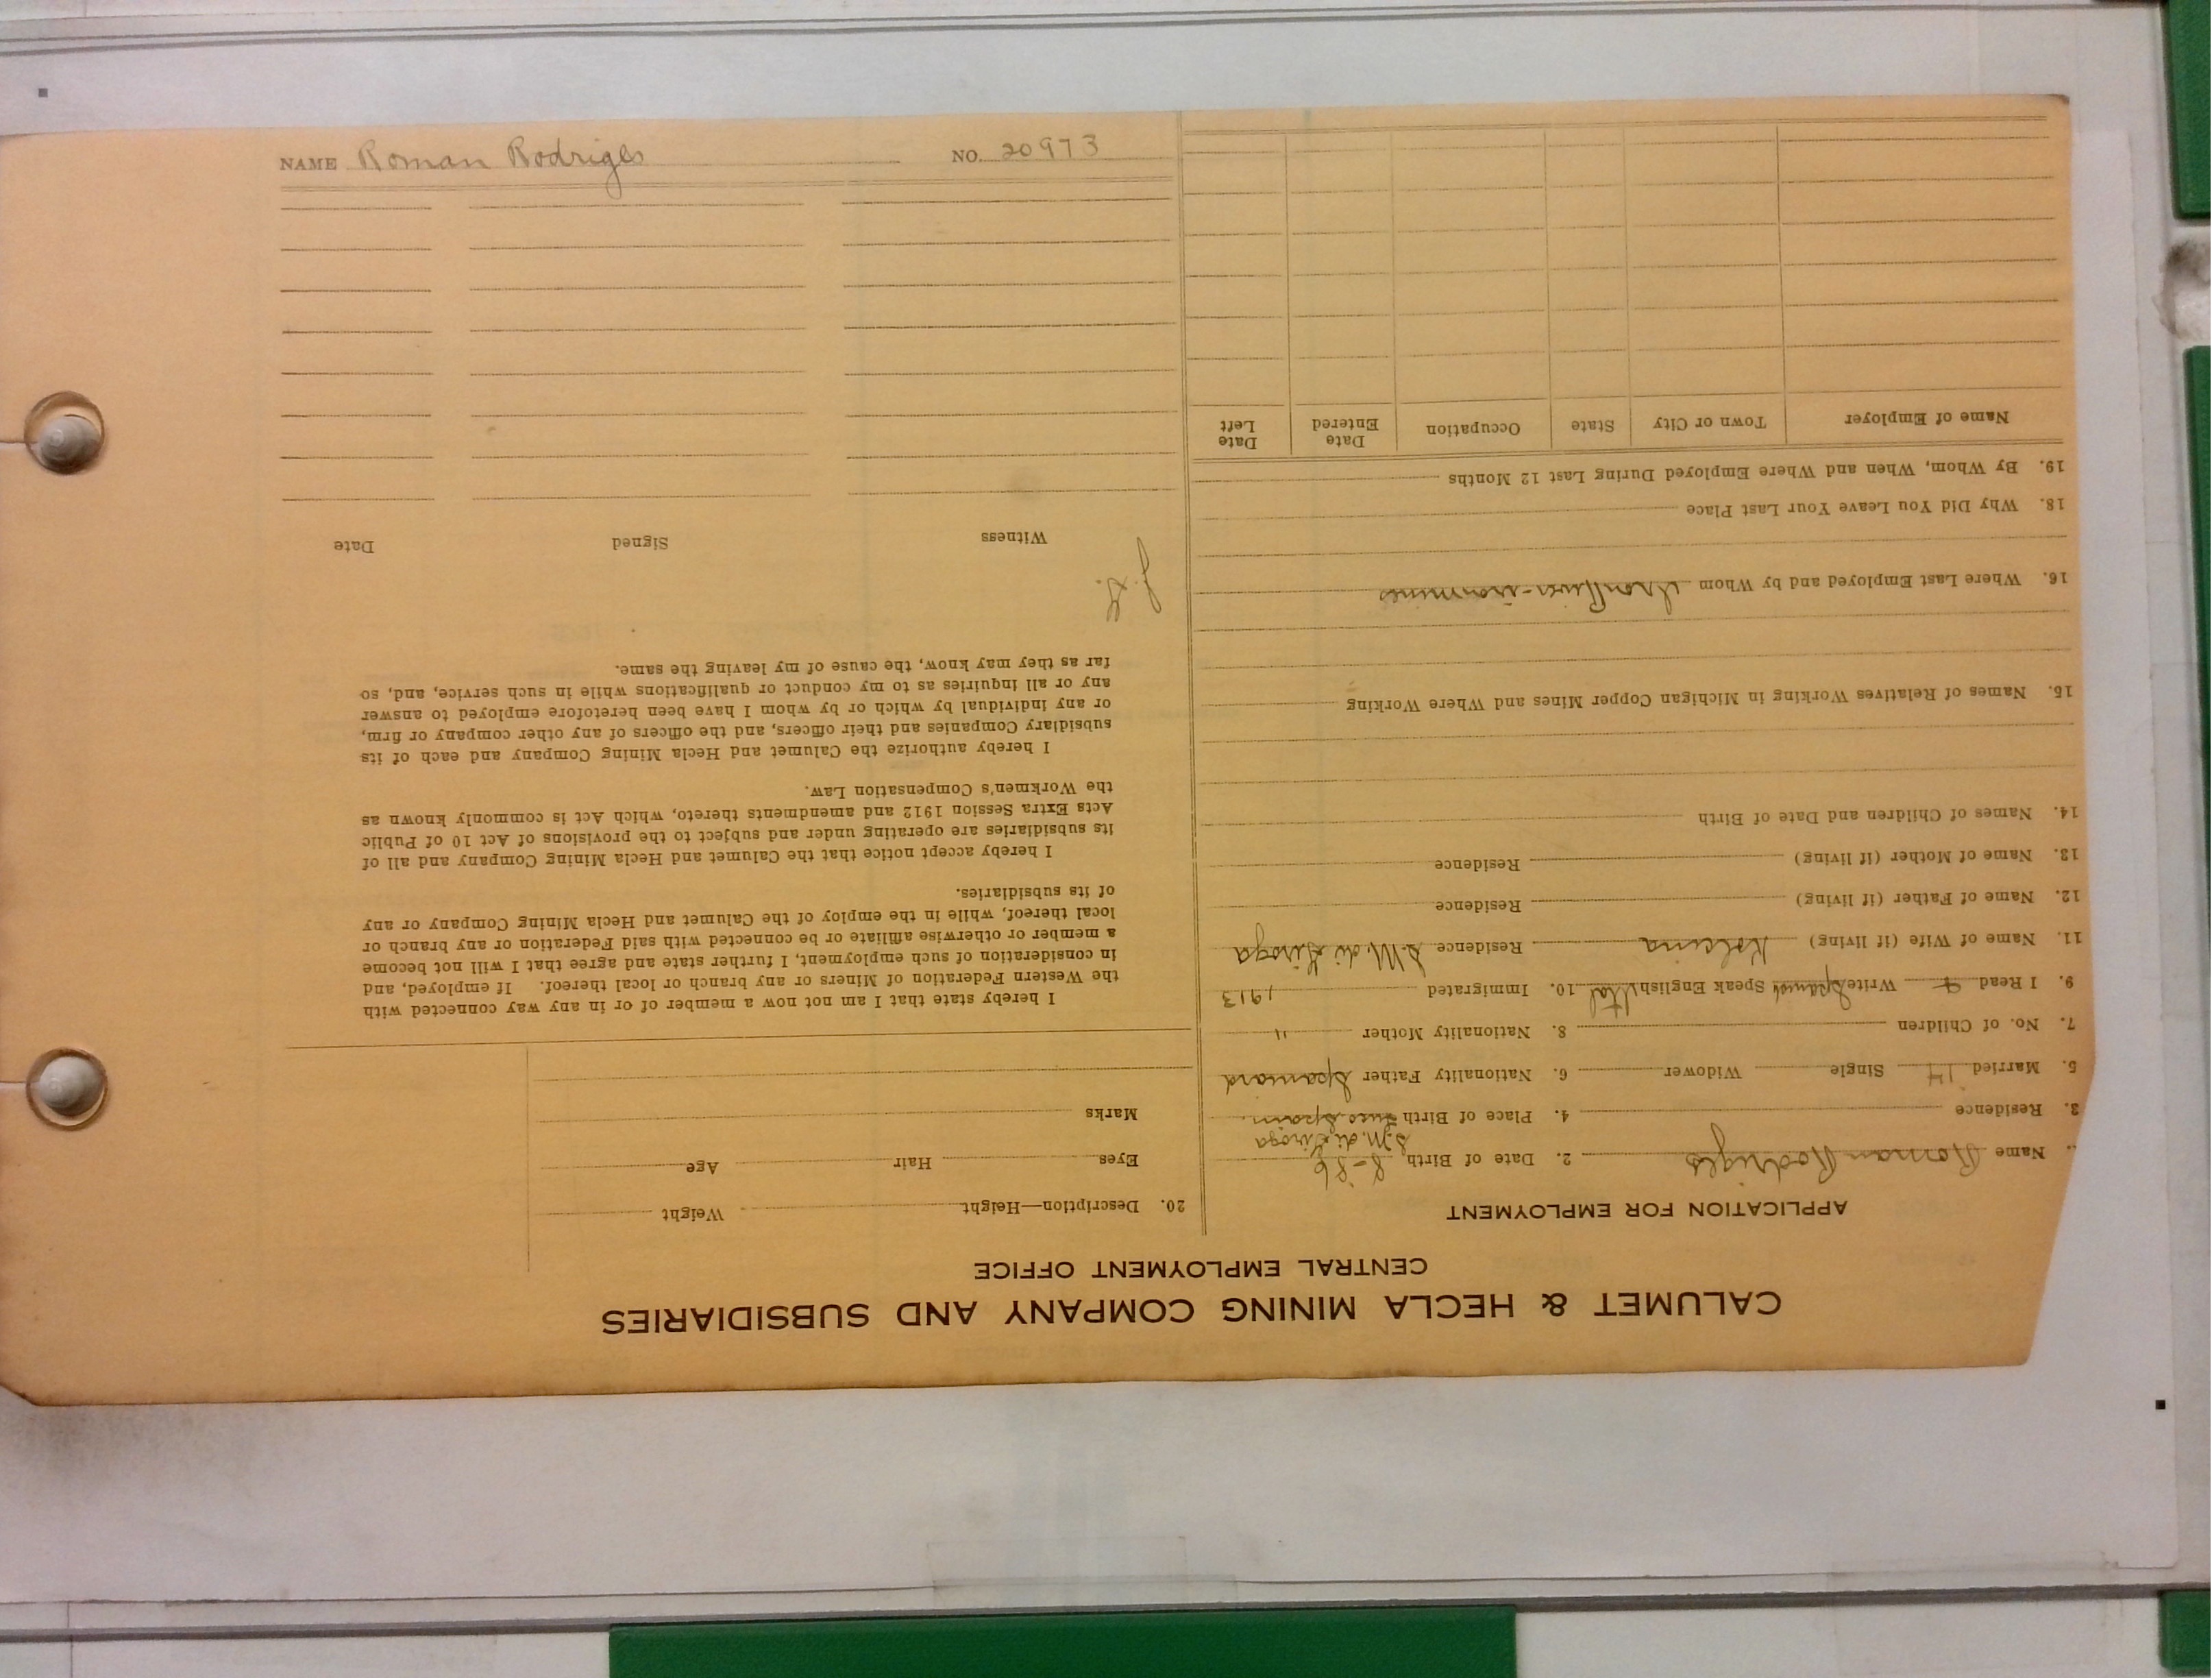 NAME Roman Rodriges NO. 20973
CALUMET & HECLA MINING COMPANY AND SUBSIDIARIES
CENTRAL EMPLOYMENT OFFICE
APPLICATION FOR EMPLOYMENT
Name Roman Rodriges 2. Date of Birth 8-86
3. Residence 4. Place of Birth S.M. di Quiroga
Lugo Spain
5. Married 14 Single Widower 6. Nationality Father Spaniard
7. No. of Children 8. Nationality Mother "
9. I Read & Write Spanish Speak English Ital 10. Immigrated 1913
11. Name of Wife (if living) Residence S.M. di Quiroga
12. Name of Father (if living) Residence
13. Name of Mother (if living) Residence
14. Names of Children and Date of Birth
15. Names of Relatives Working in Michigan Copper Mines and Where Working
16. Where Last Employed and by Whom Iron River - iron mines
18. Why Did You Leave Your Last Place
19. By Whom, When and Where Employed During Last 12 Months
Name of Employer Town or City State Occupation Date Entered Date Left
20. Description—Height Weight
Eyes Hair Age
Marks
I hereby state that I am not now a member of or in any way connected with
the Western Federation of Miners or any branch or local thereof. If employed, and
in consideration of such employment, I further state and agree that I will not become
a member or otherwise affiliate or be connected with said Federation or any branch or
local thereof, while in the employ of the Calumet and Hecla Mining Company or any
of its subsidiaries.
I hereby accept notice that the Calumet and Hecla Mining Company and all of
its subsidiaries are operating under and subject to the provisions of Act 10 of Public
Acts Extra Session 1912 and amendments thereto, which Act is commonly known as
the Workmen's Compensation Law.
I hereby authorize the Calumet and Hecla Mining Company and each of its
subsidiary Companies and their officers, and the officers of any other company or firm,
or any individual by which or by whom I have been heretofore employed to answer
any or all inquiries as to my conduct or qualifications while in such service, and, so
far as they may know, the cause of my leaving the same.
Witness Signed Date